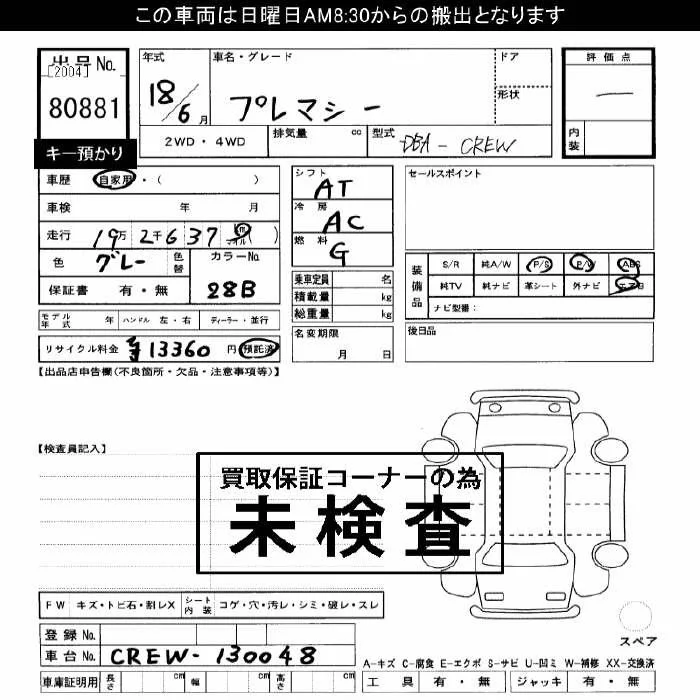 この車両は日曜日AM8:30からの搬出となります
出品No.
[2004]
80881
キー預かり
年式
18/6月
車名・グレード
プレマシー
ドア
形状
評価点
—
内装
2WD・4WD
排気量 cc
型式 DBA-CREW
車歴 自家用・( )
車検 年 月
走行 19万2千637 km マイル )
色 グレー 色替
カラーNo. 28B
保証書 有・無
シフト AT
冷房 AC
燃料 G
乗車定員 名
積載量 kg
総重量 kg
名変期限
月 日
セールスポイント
装備品
S/R 純A/W P/S P/W ABS
純TV 純ナビ 革シート 外ナビ エアB
ナビ型番:
後日品
モデル年式 年 ハンドル 左・右 ディーラー・並行
リサイクル料金 ¥13360 円 預託済
【出品店申告欄(不良箇所・欠品・注意事項等)】
【検査員記入】
買取保証コーナーの為
未検査
FW キズ・トビ石・割レX シート内装 コゲ・穴・汚レ・シミ・破レ・スレ
登録No.
車台No. CREW-130048
車庫証明用 長さ cm 幅 cm 高さ cm
スペア
A-キズ C-腐食 E-エクボ S-サビ U-凹ミ W-補修 XX-交換済
工具 有・無 ジャッキ 有・無